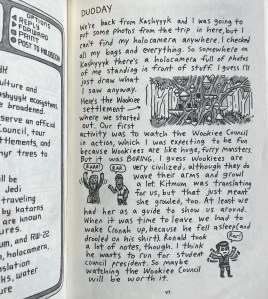 REPLY
OPTIONS
FORWARD
PRINT
POST TO HOLOBOOK
ulture and
Kashyyyk ecosystem,
e broadened
serve an official
Council, tour
ttlements, and
hyr trees to
ill be
Jedi
traveling
by katarns
are known
tures.
um, and RW-22
n, holocamera,
nslation
ks, water
DUODAY
We're back from Kashyyyk and I was going
to put some photos from the trip in here, but I
can't find my holocamera anywhere. I checked
all my bags and everything. So somewhere on
Kashyyyk there's a holocamera full of photos
of me standing in front of stuff. I guess I'll
just draw what
I saw anyway.
Here's the Wookiee
settlement—
where we started
out. Our first
activity was to watch the Wookiee Council
in action, which I was expecting to be fun
because Wookiees are like huge, furry monsters.
But it was BORING. I guess Wookiees are
very civilized, although they do
wave their arms and growl
a lot. Kitmum was translating
for us, but that just meant
she growled, too. At least we
had her as a guide to show us around.
When it was time to leave we had to
wake Cronah up, because he fell asleep (and
drooled on his shirt). Ronald took
a lot of notes, though. I think
he wants to run for student
council president. So maybe
watching the Wookiee Council
will be worth it.